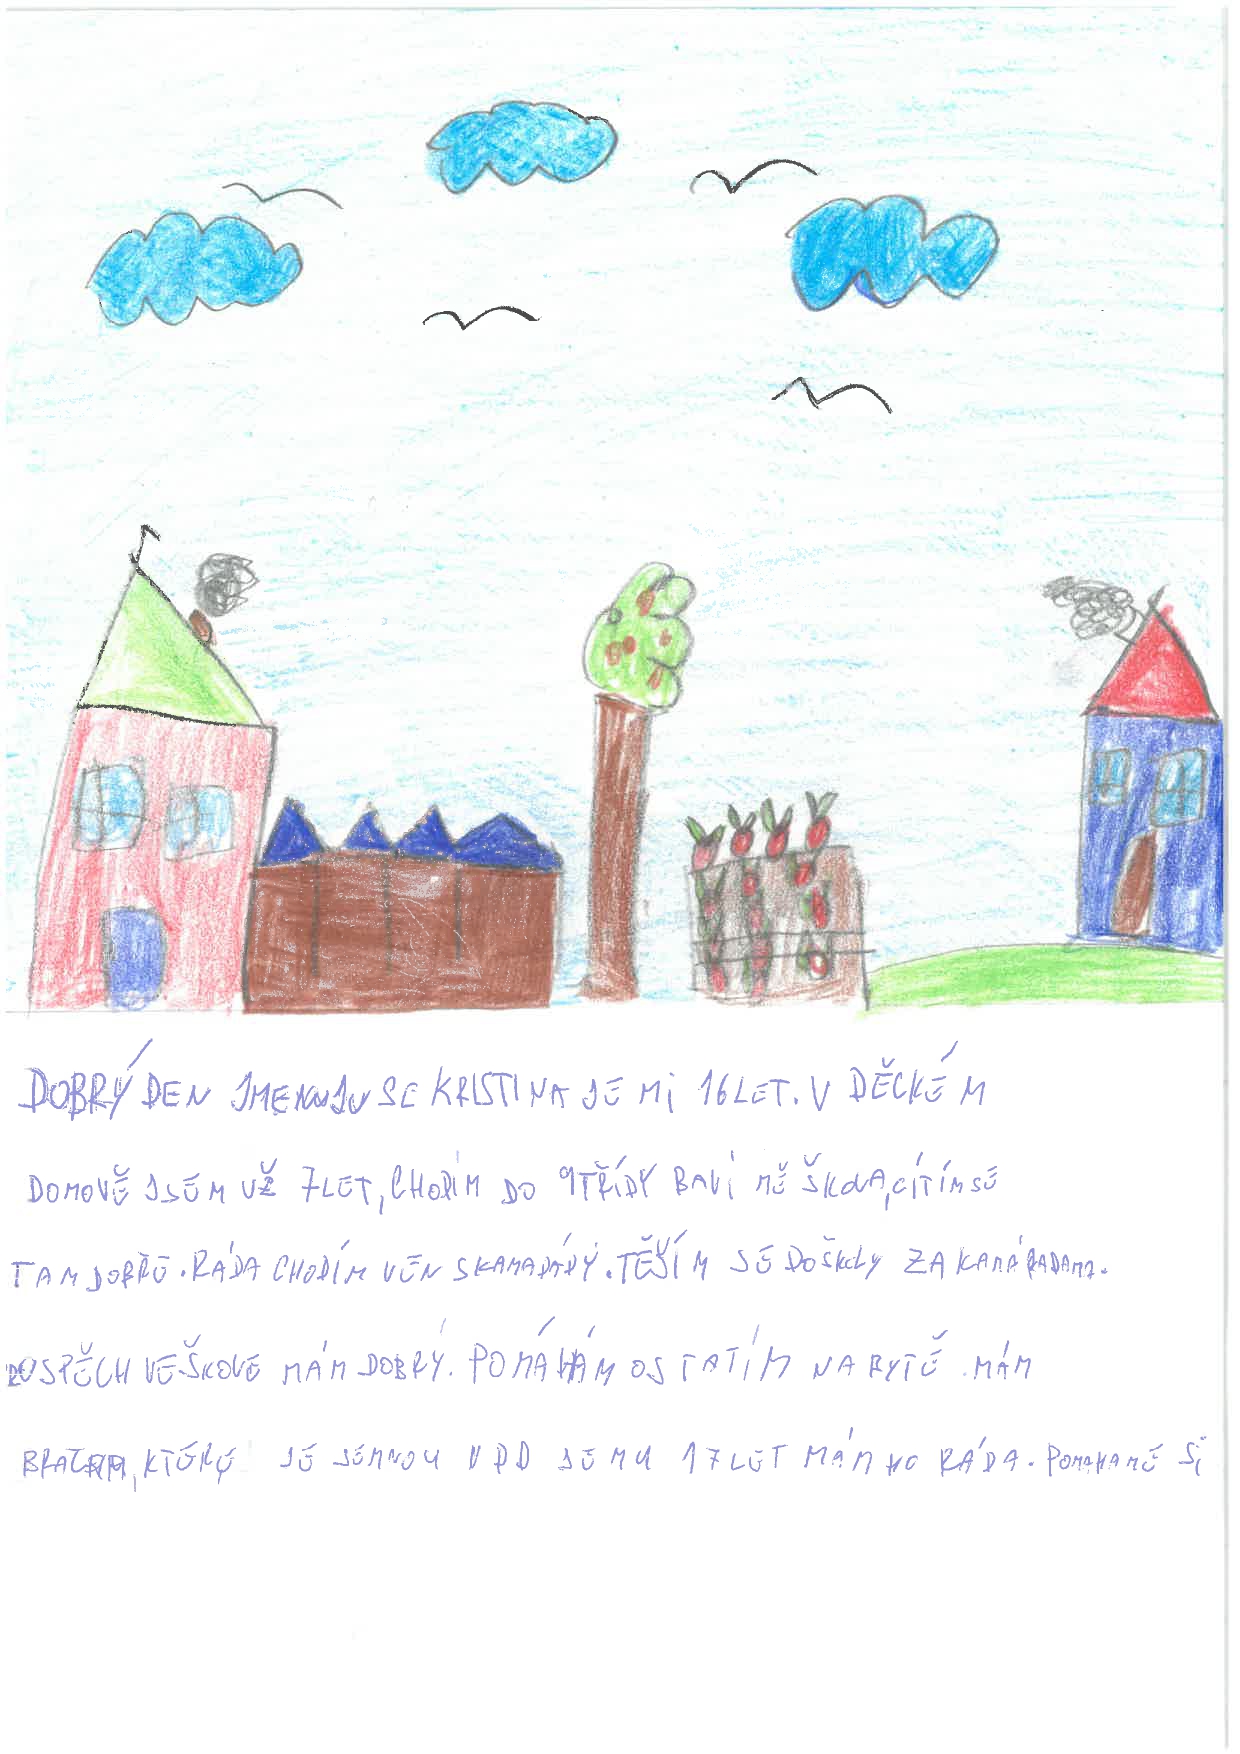 DOBRÝ DEN JMENUJU SE KRISTINA JE MI 16 LET. V DĚCKÉM
DOMOVĚ JSEM UŽ 7 LET, CHODÍM DO 9 TŘÍDY BAVÍ MĚ ŠKOLA, CÍTÍM SE
TAM DOBŘE. RÁDA CHODÍM VEN S KAMARÁDY. TĚŠÍM SE DO ŠKOLY ZA KAMÁRADAMA.
POSPĚCH VE ŠKOLE MÁM DOBRÝ. POMÁHÁM OSTATÍM NA BYTĚ. MÁM
KTERÝ JE SEMNOU V DD JE MU 17 LET MÁM HO RÁDA. POMAHAMĚ SI